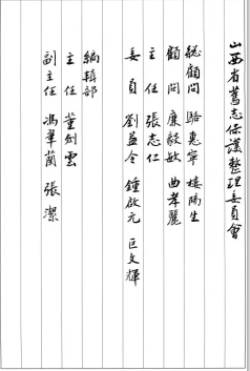 山西省舊志保護整理委員會
總顧問 駱惠寧 樓陽生
顧問 廉毅敏 曲孝麗
主任 張志仁
委員 劉益令 鍾啟元 巨文輝
編輯部
主任 董劍雲
副主任 馮翠蘭 張潔